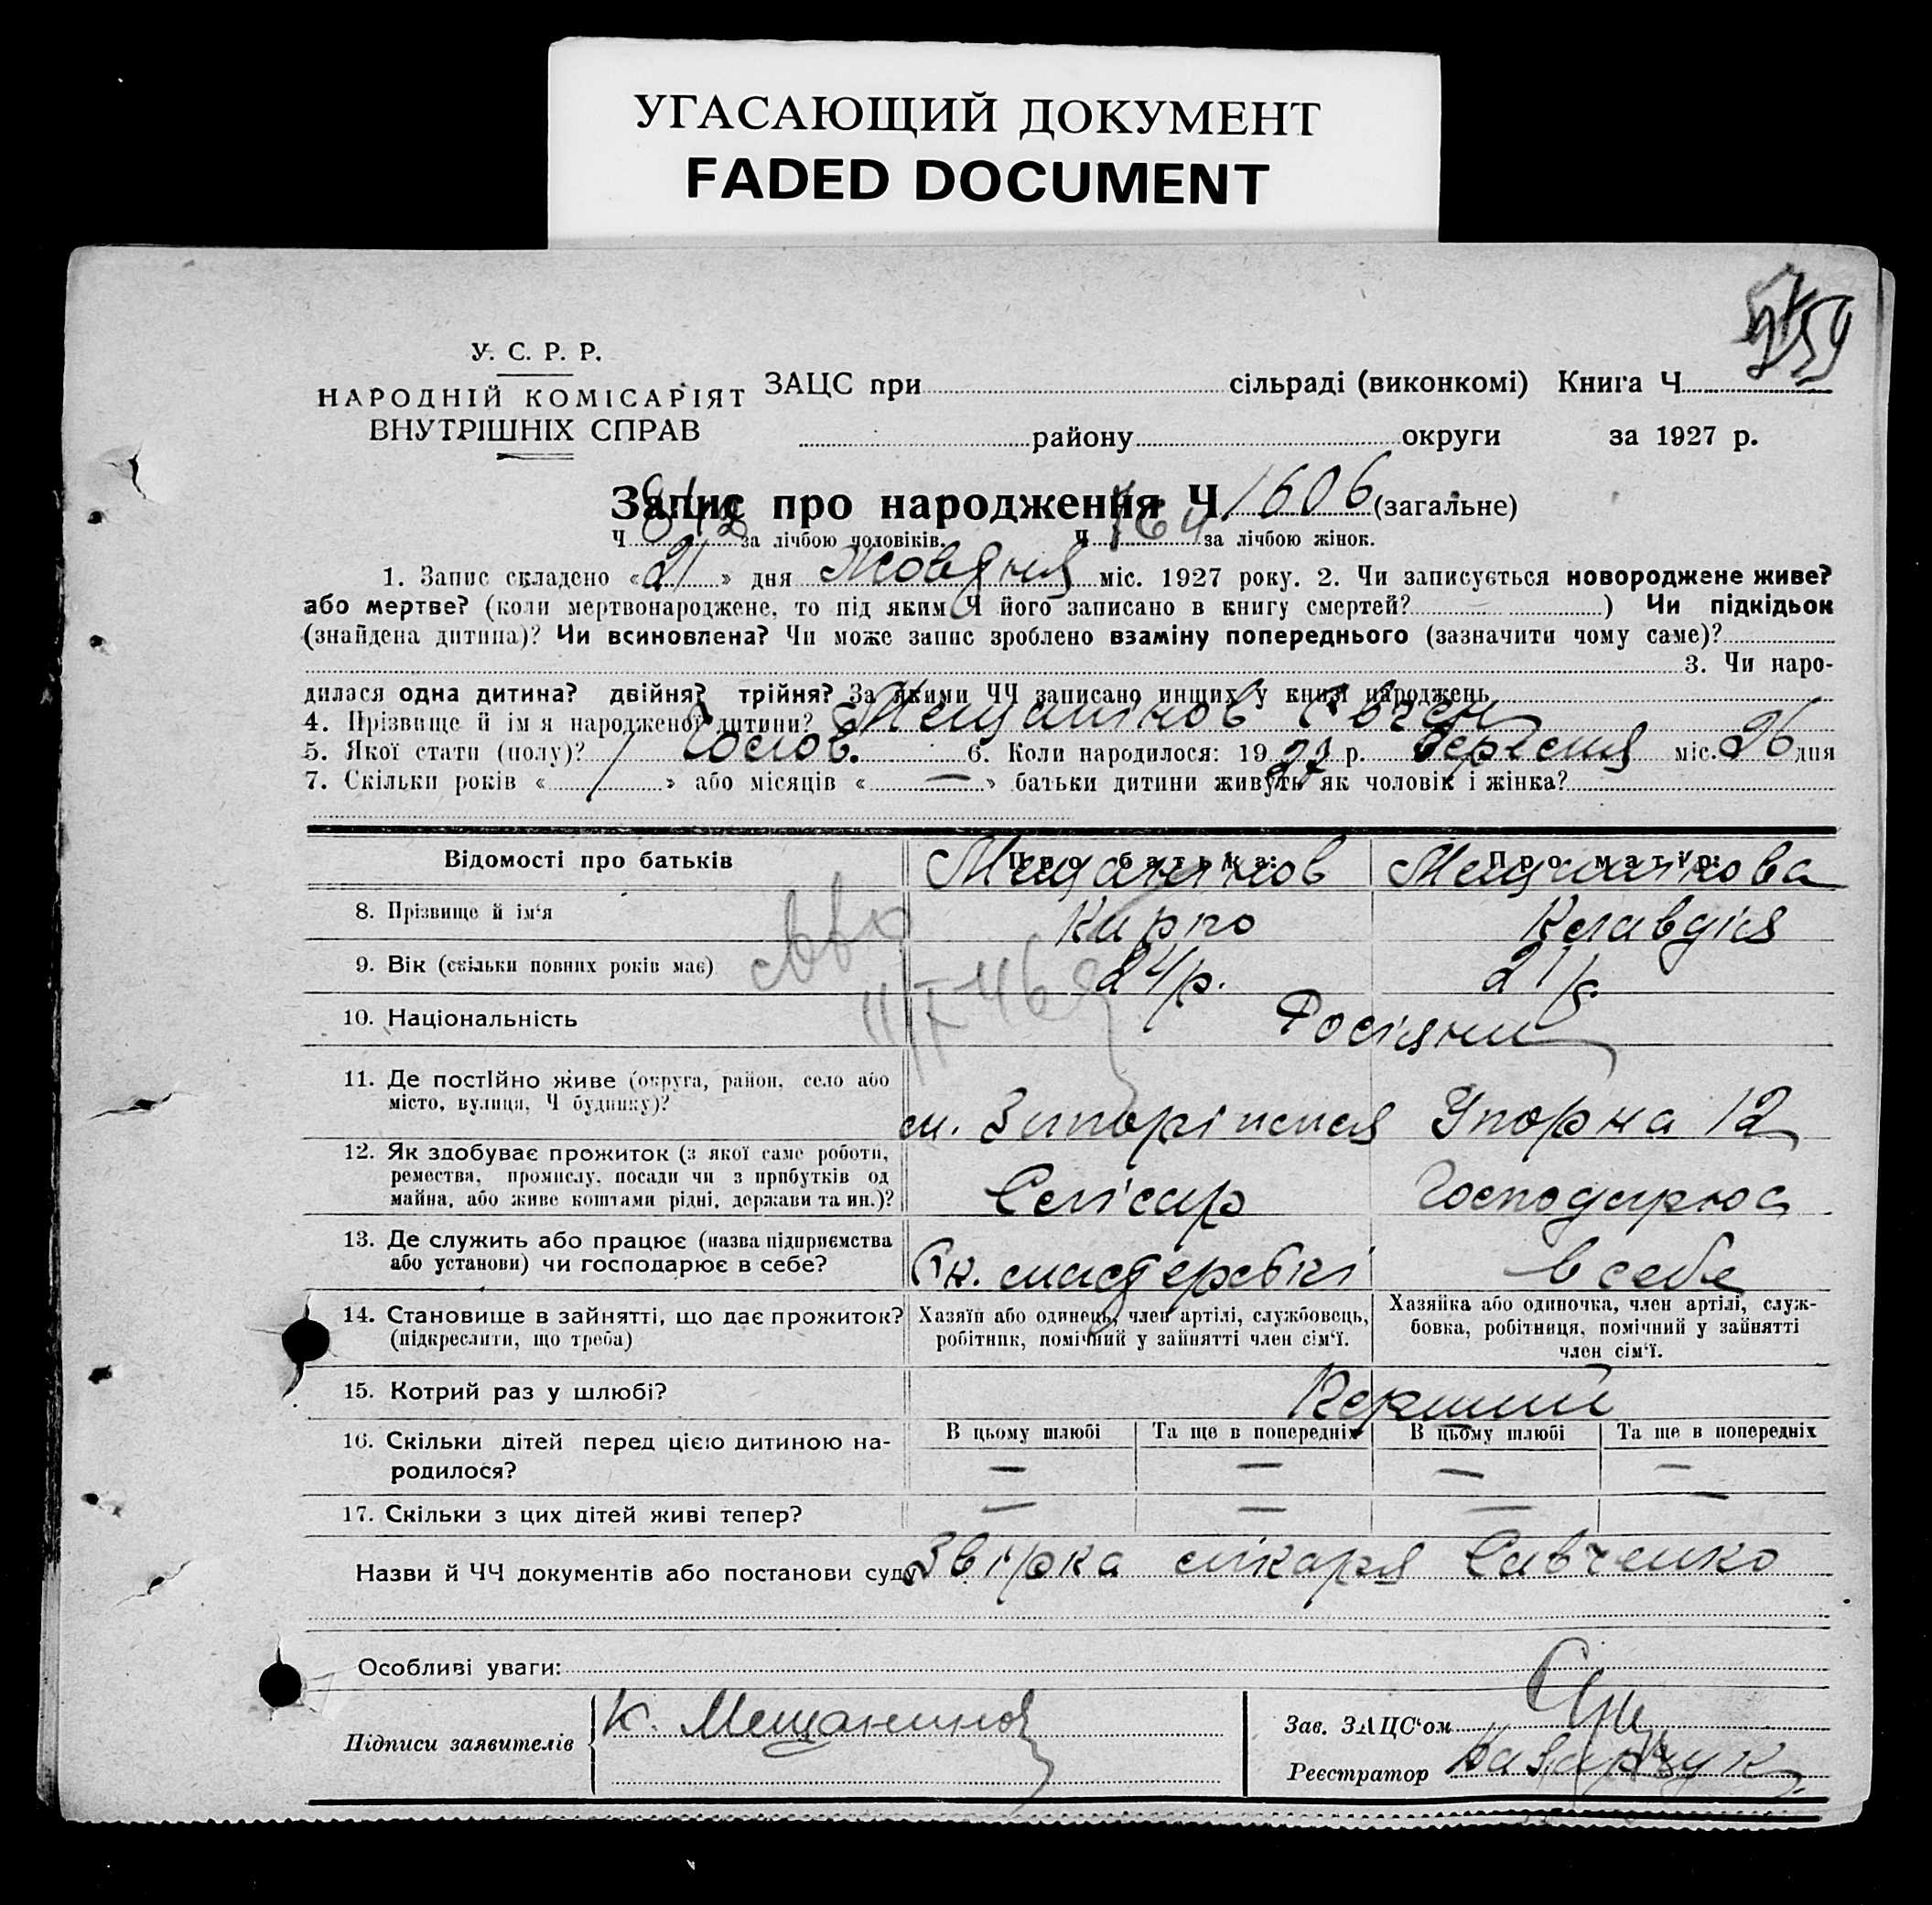 УГАСАЮЩИЙ ДОКУМЕНТ
FADED DOCUMENT
У. С. Р. Р.
НАРОДНІЙ КОМІСАРІЯТ
ВНУТРІШНІХ СПРАВ
ЗАЦС при сільраді (виконкомі) Книга Ч
району округи за 1927 р.
Запис про народження Ч 1606 (загальне)
Ч 842 за лічбою чоловіків. Ч 764 за лічбою жінок.
1. Запис складено «21» дня Жовдня міс. 1927 року. 2. Чи записується новороджене живе?
або мертве? (коли мертвонароджене, то під яким Ч його записано в книгу смертей? ) Чи підкідьок
(знайдена дитина)? Чи всиновлена? Чи може запис зроблено взаміну попереднього (зазначити чому саме)?
3. Чи наро-
дилася одна дитина? двійня? трійня? За якими ЧЧ записано инших у книзі народжень
4. Прізвище й ім я народженої дитини? Мещанінов Євген
5. Якої стати (полу)? Чолов. 6. Коли народилося: 1927 р. Вересня міс. 26 дня
7. Скільки років « / » або місяців « — » батьки дитини живуть як чоловік і жінка?
Відомості про батьків Про батька: Про матір:
8. Прізвище й ім'я Мещанінов Мещанінова
Карпо Клавдія
9. Вік (скільки повних років має) 24 р. 21 р.
10. Національність Росіяни
11. Де постійно живе (округа, район, село або
місто, вулиця, Ч будинку)?
м. Запоріжжя Упорна 12
12. Як здобуває прожиток (з якої саме роботи,
ремества, промислу, посади чи з прибутків од
майна, або живе коштами рідні, держави та ин.)?
Слісар Господарює
13. Де служить або працює (назва підприємства
або установи) чи господарює в себе?
майстерські в себе
14. Становище в зайнятті, що дає прожиток?
(підкреслити, що треба)
Хазяїн або одинець, член артілі, службовець,
робітник, помічний у зайнятті член сім'ї.
Хазяйка або одиночка, член артілі, служ-
бовка, робітниця, помічний у зайнятті
член сім'ї.
15. Котрий раз у шлюбі? Перший
16. Скільки дітей перед цією дитиною на-
родилося?
В цьому шлюбі Та ще в попередніх В цьому шлюбі Та ще в попередніх
— — — —
17. Скільки з цих дітей живі тепер? — — — —
Назви й ЧЧ документів або постанови суду Звірка лікаря Савченко
Особливі уваги:
Підписи заявителів К. Мещанинов
Зав. ЗАЦС'ом
Реєстратор